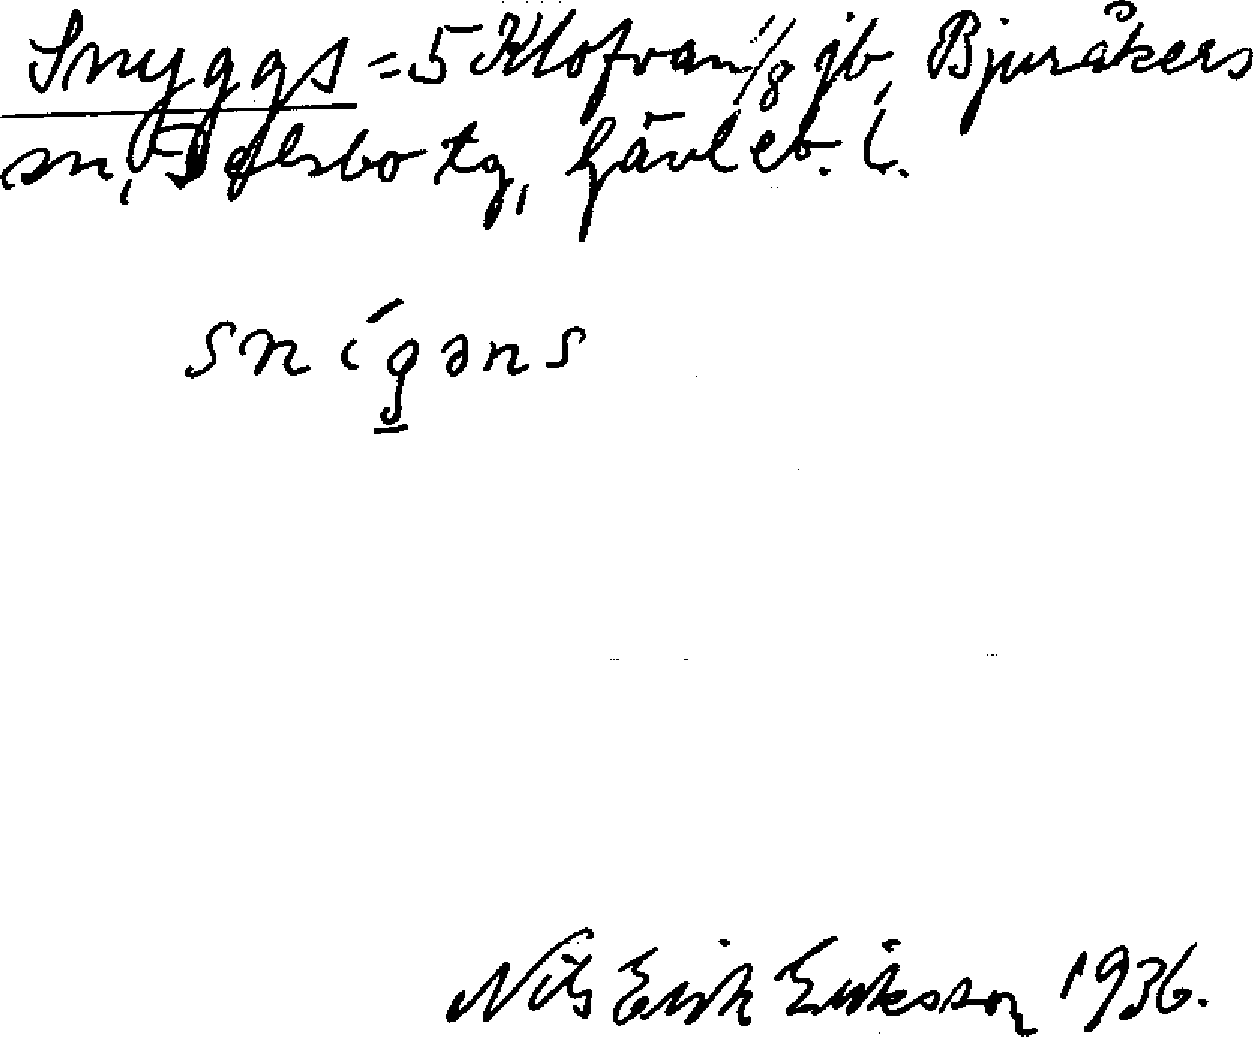 Snyggs = 5 Klofvan 1/8 jb, Bjuråkers
sn, Idelsbo tg, Gävleb. l.
snígəns
Nils Erik Eriksson 1936.